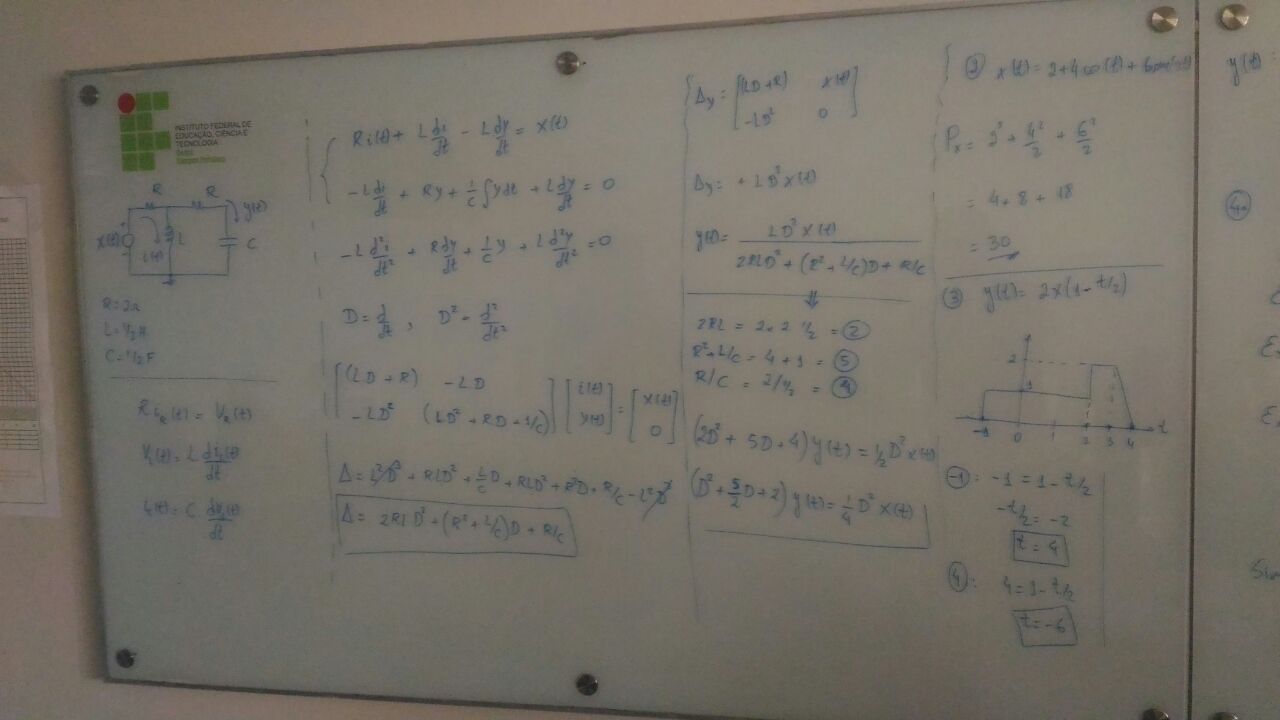 INSTITUTO FEDERAL DE
EDUCAÇÃO, CIÊNCIA E
TECNOLOGIA
R R
y(t)
x(t)
+
-
L
i(t)
C
R=2Ω
L=1/2 H
C=1/2 F
R i_R(t) = V_R(t)
V_L(t) = L di_L(t)/dt
i_c(t) = C dV_c(t)/dt
R i(t) + L di/dt - L dy/dt = x(t)
-L di/dt + Ry + 1/C ∫ y dt + L dy/dt = 0
-L d²i/dt² + R dy/dt + 1/C y + L d²y/dt² = 0
D = d/dt , D² = d²/dt²
[(LD+R) -LD] [i(t)] = [x(t)]
[-LD² (LD²+RD+1/C)] [y(t)] [0]
Δ = L²D³ + RLD² + L/C D + RLD² + R²D + R/C - L²D³
Δ = 2RLD² + (R² + L/C)D + R/C
Δy = [(LD+R) x(t)]
[-LD² 0]
Δy = + LD² x(t)
y(t) = LD² x(t)
2RLD² + (R² + L/C)D + R/C
⇓
2RL = 2×2 1/2 = 2
R²+L/C = 4 + 1 = 5
R/C = 2/1/2 = 4
(2D² + 5D + 4) y(t) = 1/2 D² x(t)
(D² + 5/2 D + 2) y(t) = 1/4 D² x(t)
2 x(t) = 2 + 4cos(t) +
Px = 2² + 4²/2 + 6²/2
= 4 + 8 + 18
= 30
3 y(t) = 2x(1 - t/2)
2
1
-1 0 1 2 3 4 t
-1: -1 = 1 - t/2
-t/2 = -2
t = 4
4: 4 = 1 - t/2
t = -6
y(t) =
4a